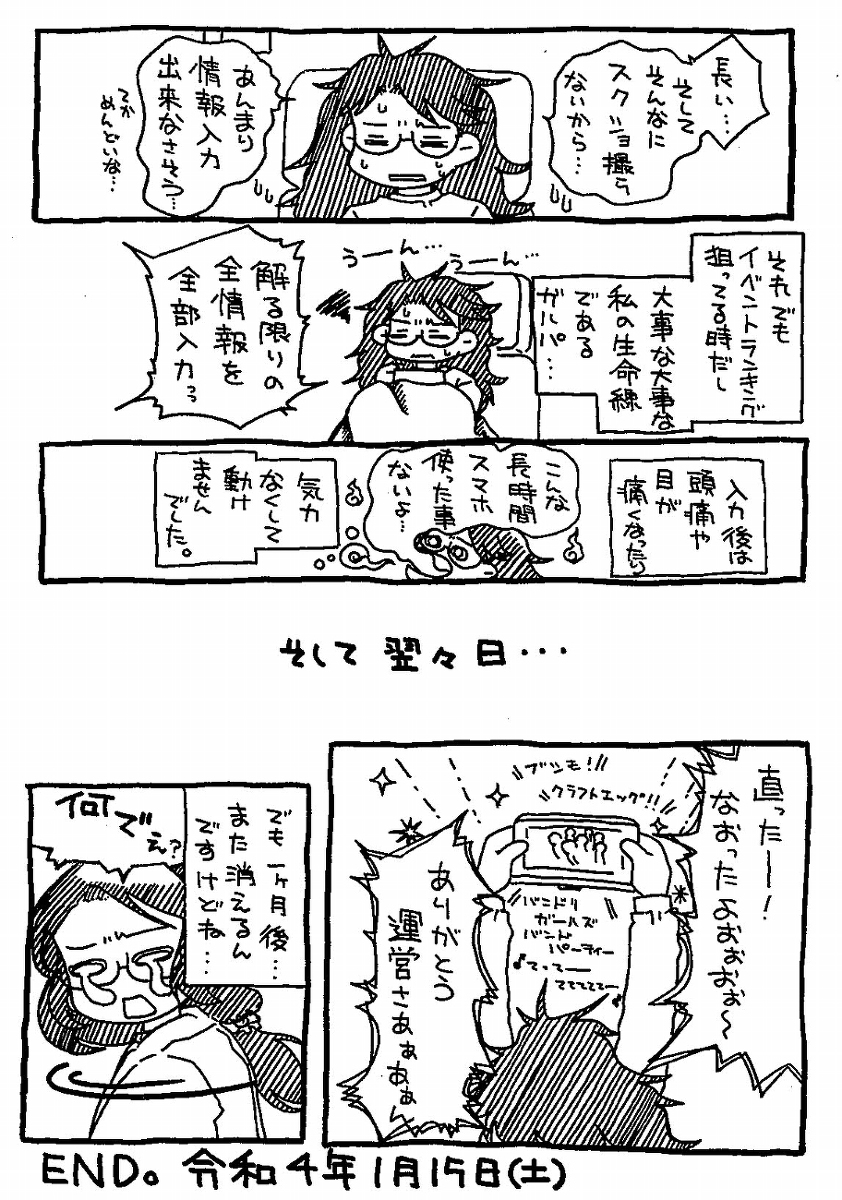 長い…
そして
そんなに
スクショ撮ら
ないから…
あんまり
情報入力
出来なさそう…
てか
めんどいな…
それでも
イベントランキング
狙ってる時だし
大事な大事な
私の生命線
である
ガルパ…
うーん…
うーん…
解る限りの
全情報を
全部入力っっ
入力後は
頭痛や
目が
痛くなったり
こんな
長時間
スマホ
使った事
ないよ…
気力
なくして
動け
ません
でした。
そして翌々日…
直ったー!
なおったよおぉぉぉ〜
ブシモ!!
クラフトエッグ!!
バンドリ
ガールズ
バンド
パーティー
♪てってー
ててててて〜♪
ありがとう
運営さあぁあぁん
でも一ヶ月後…
また消えるん
ですけどね…
何でぇ?
END。令和4年1月15日(土)